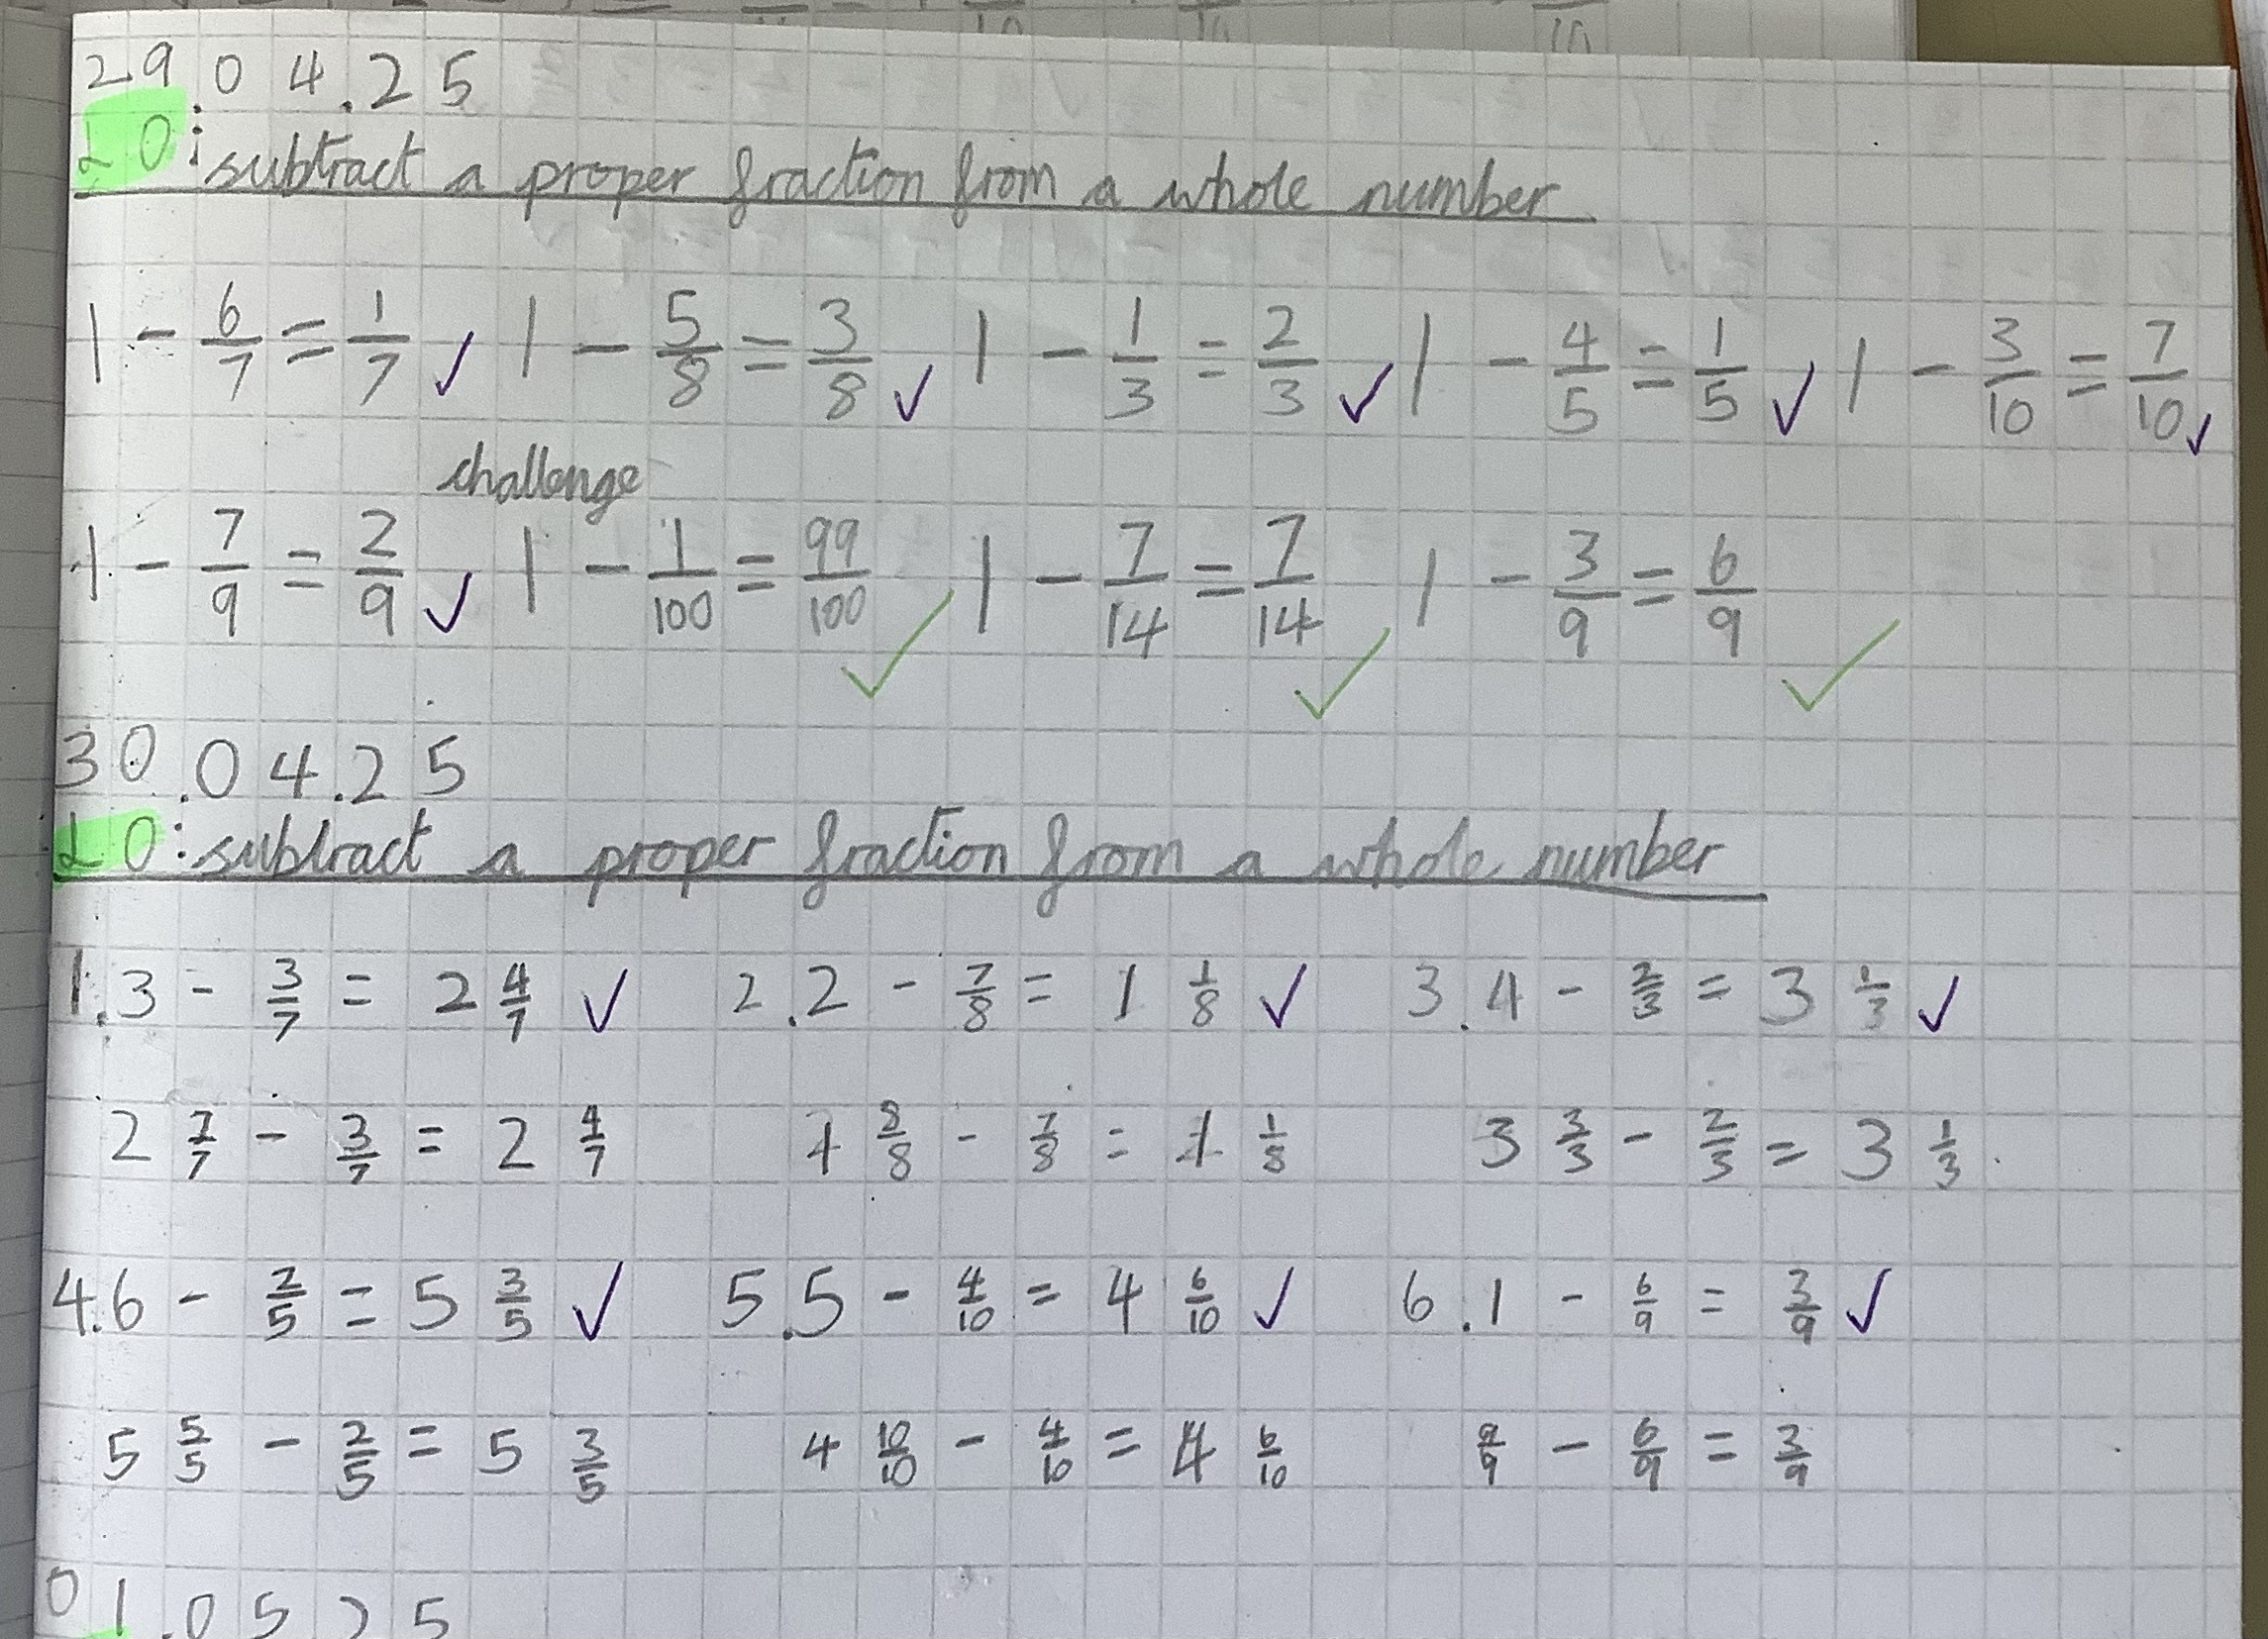 29.04.25
LO: subtract a proper fraction from a whole number
1 - 6/7 = 1/7 ✓ 1 - 5/8 = 3/8 ✓ 1 - 1/3 = 2/3 ✓ 1 - 4/5 = 1/5 ✓ 1 - 3/10 = 7/10 ✓
challenge
1 - 7/9 = 2/9 ✓ 1 - 1/100 = 99/100 ✓ 1 - 7/14 = 7/14 ✓ 1 - 3/9 = 6/9 ✓
30.04.25
LO: subtract a proper fraction from a whole number
1. 3 - 3/7 = 2 4/7 ✓ 2. 2 - 7/8 = 1 1/8 ✓ 3. 4 - 2/3 = 3 1/3 ✓
2 7/7 - 3/7 = 2 4/7 1 8/8 - 7/8 = 1 1/8 3 3/3 - 2/3 = 3 1/3
4. 6 - 2/5 = 5 3/5 ✓ 5. 5 - 4/10 = 4 6/10 ✓ 6. 1 - 6/9 = 3/9 ✓
5 5/5 - 2/5 = 5 3/5 4 10/10 - 4/10 = 4 6/10 9/9 - 6/9 = 3/9
01.05.25